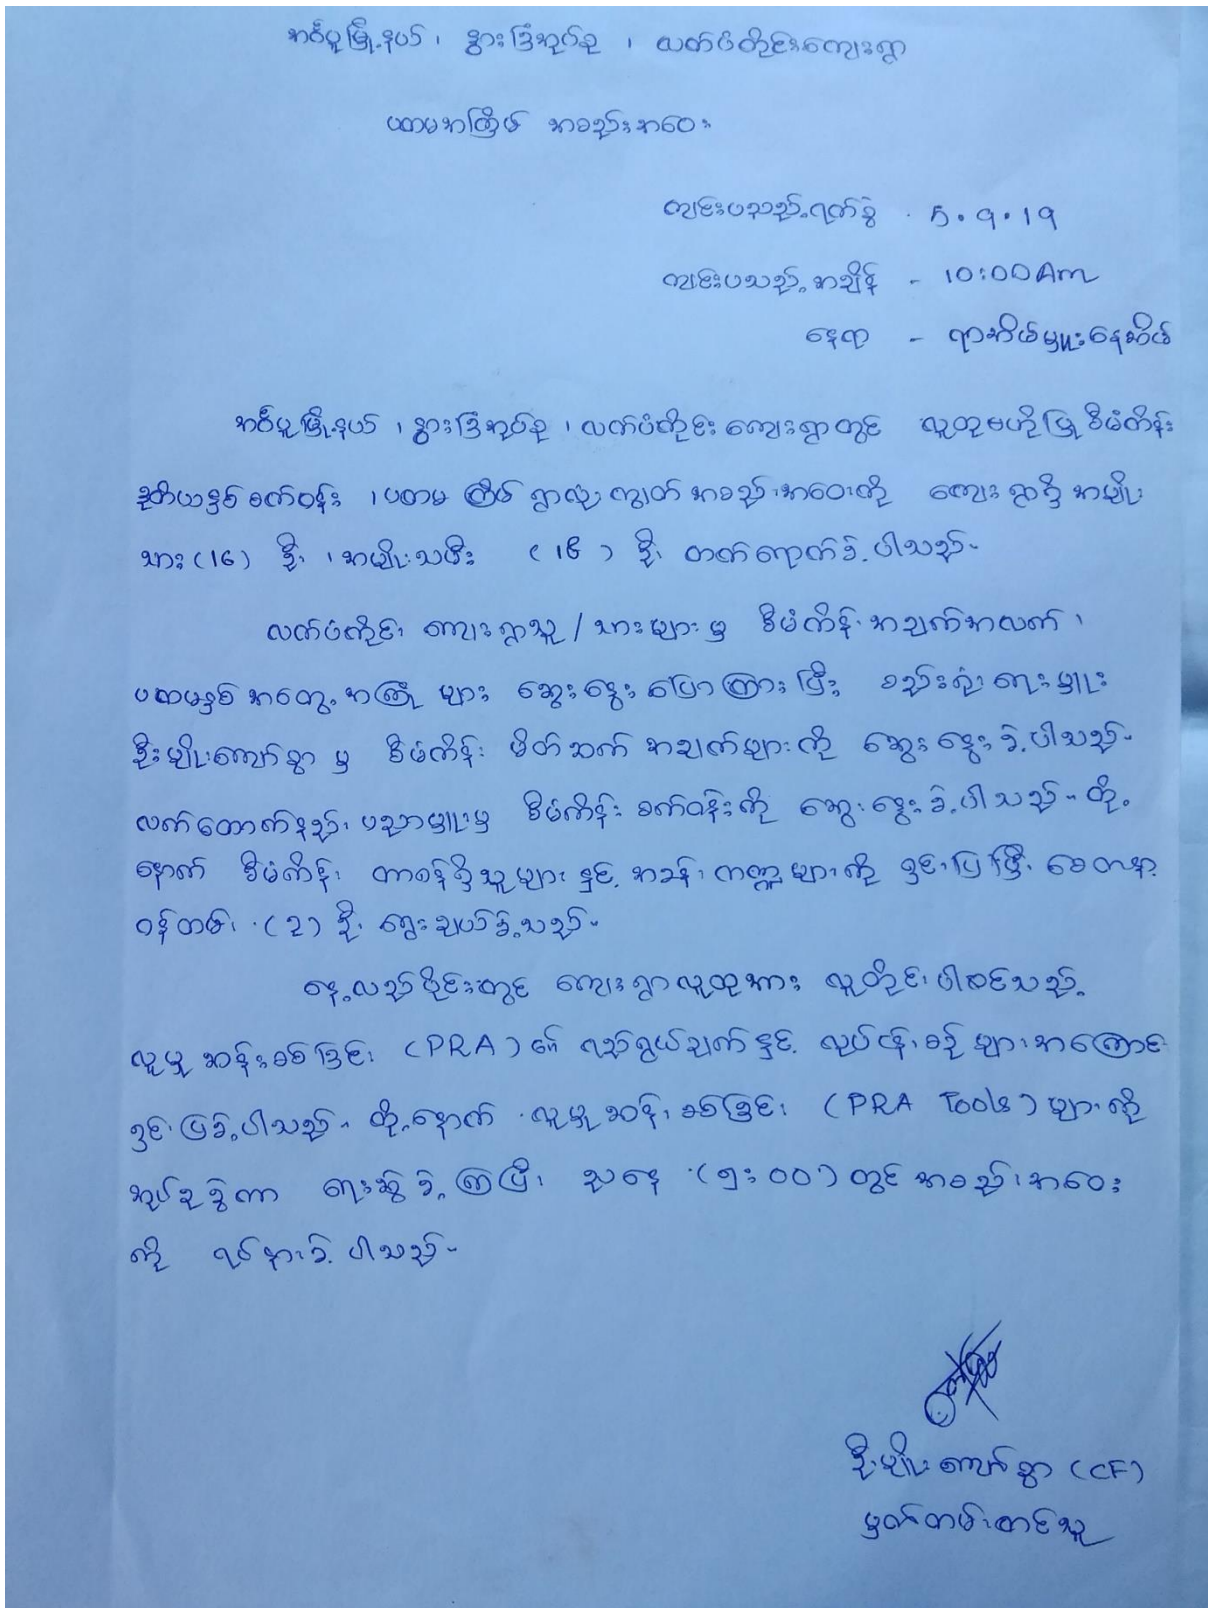 အင်္ဂပူမြို့နယ် ၊ နွားခြံအုပ်စု ၊ လက်ပံတိုင်းကျေးရွာ
ပထမအကြိမ် အစည်းအဝေး
ကျင်းပသည့်ရက်စွဲ . 5.9.19
ကျင်းပသည့်အချိန် - 10:00Am
နေရာ - ရာအိမ်မှူးနေအိမ်
အင်္ဂပူမြို့နယ် ၊ နွားခြံအုပ်စု ၊ လက်ပံတိုင်းကျေးရွာတွင် လူထုဗဟိုပြုစီမံကိန်း
ဒုတိယနှစ်စက်ဝန်း ၊ ပထမ ကြိမ် ရွာလုံးကျွတ် အစည်းအဝေးကို ကျေးရွာရှိ အမျိုး
သား (၁၆) ဦး ၊ အမျိုးသမီး (၁၆) ဦး တက်ရောက်ခဲ့ပါသည်။
လက်ပံတိုင်း ကျေးရွာသူ / သားများမှ စီမံကိန်းအချက်အလက် ၊
ပထမနှစ်အတွေ့အကြုံများ ဆွေးနွေးပြောကြားပြီး စည်းရုံးရေးမှူး
ဦးမျိုးကျော်စွာမှ စီမံကိန်း မိတ်ဆက် အချက်များကို ဆွေးနွေးခဲ့ပါသည်။
လက်ထောက်နည်းပညာမှူးမှ စီမံကိန်းစက်ဝန်းကို ဆွေးနွေးခဲ့ပါသည်။ ထို့
နောက် စီမံကိန်း တာဝန်ရှိသူများနှင့် အခန်းကဏ္ဍများကို ရှင်းပြပြီး စေတနာ့
ဝန်ထမ်း (၃) ဦး ရွေးချယ်ခဲ့သည်။
နေ့လည်ပိုင်းတွင် ကျေးရွာလူထုအား လူတိုင်းပါဝင်သည့်
လူမှုဆန်းစစ်ခြင်း (PRA) ၏ ရည်ရွယ်ချက်နှင့် လုပ်ငန်းစဉ်များအကြောင်း
ရှင်းပြခဲ့ပါသည်။ ထို့နောက် လူမှုဆန်းစစ်ခြင်း (PRA Tools) များကို
အုပ်စုခွဲကာ ရေးဆွဲခဲ့ကြပြီး ညနေ (၅:၀၀) တွင် အစည်းအဝေး
ကို ရပ်နားခဲ့ပါသည်။
ဦးမျိုးကျော်စွာ (CF)
မှတ်တမ်းတင်သူ